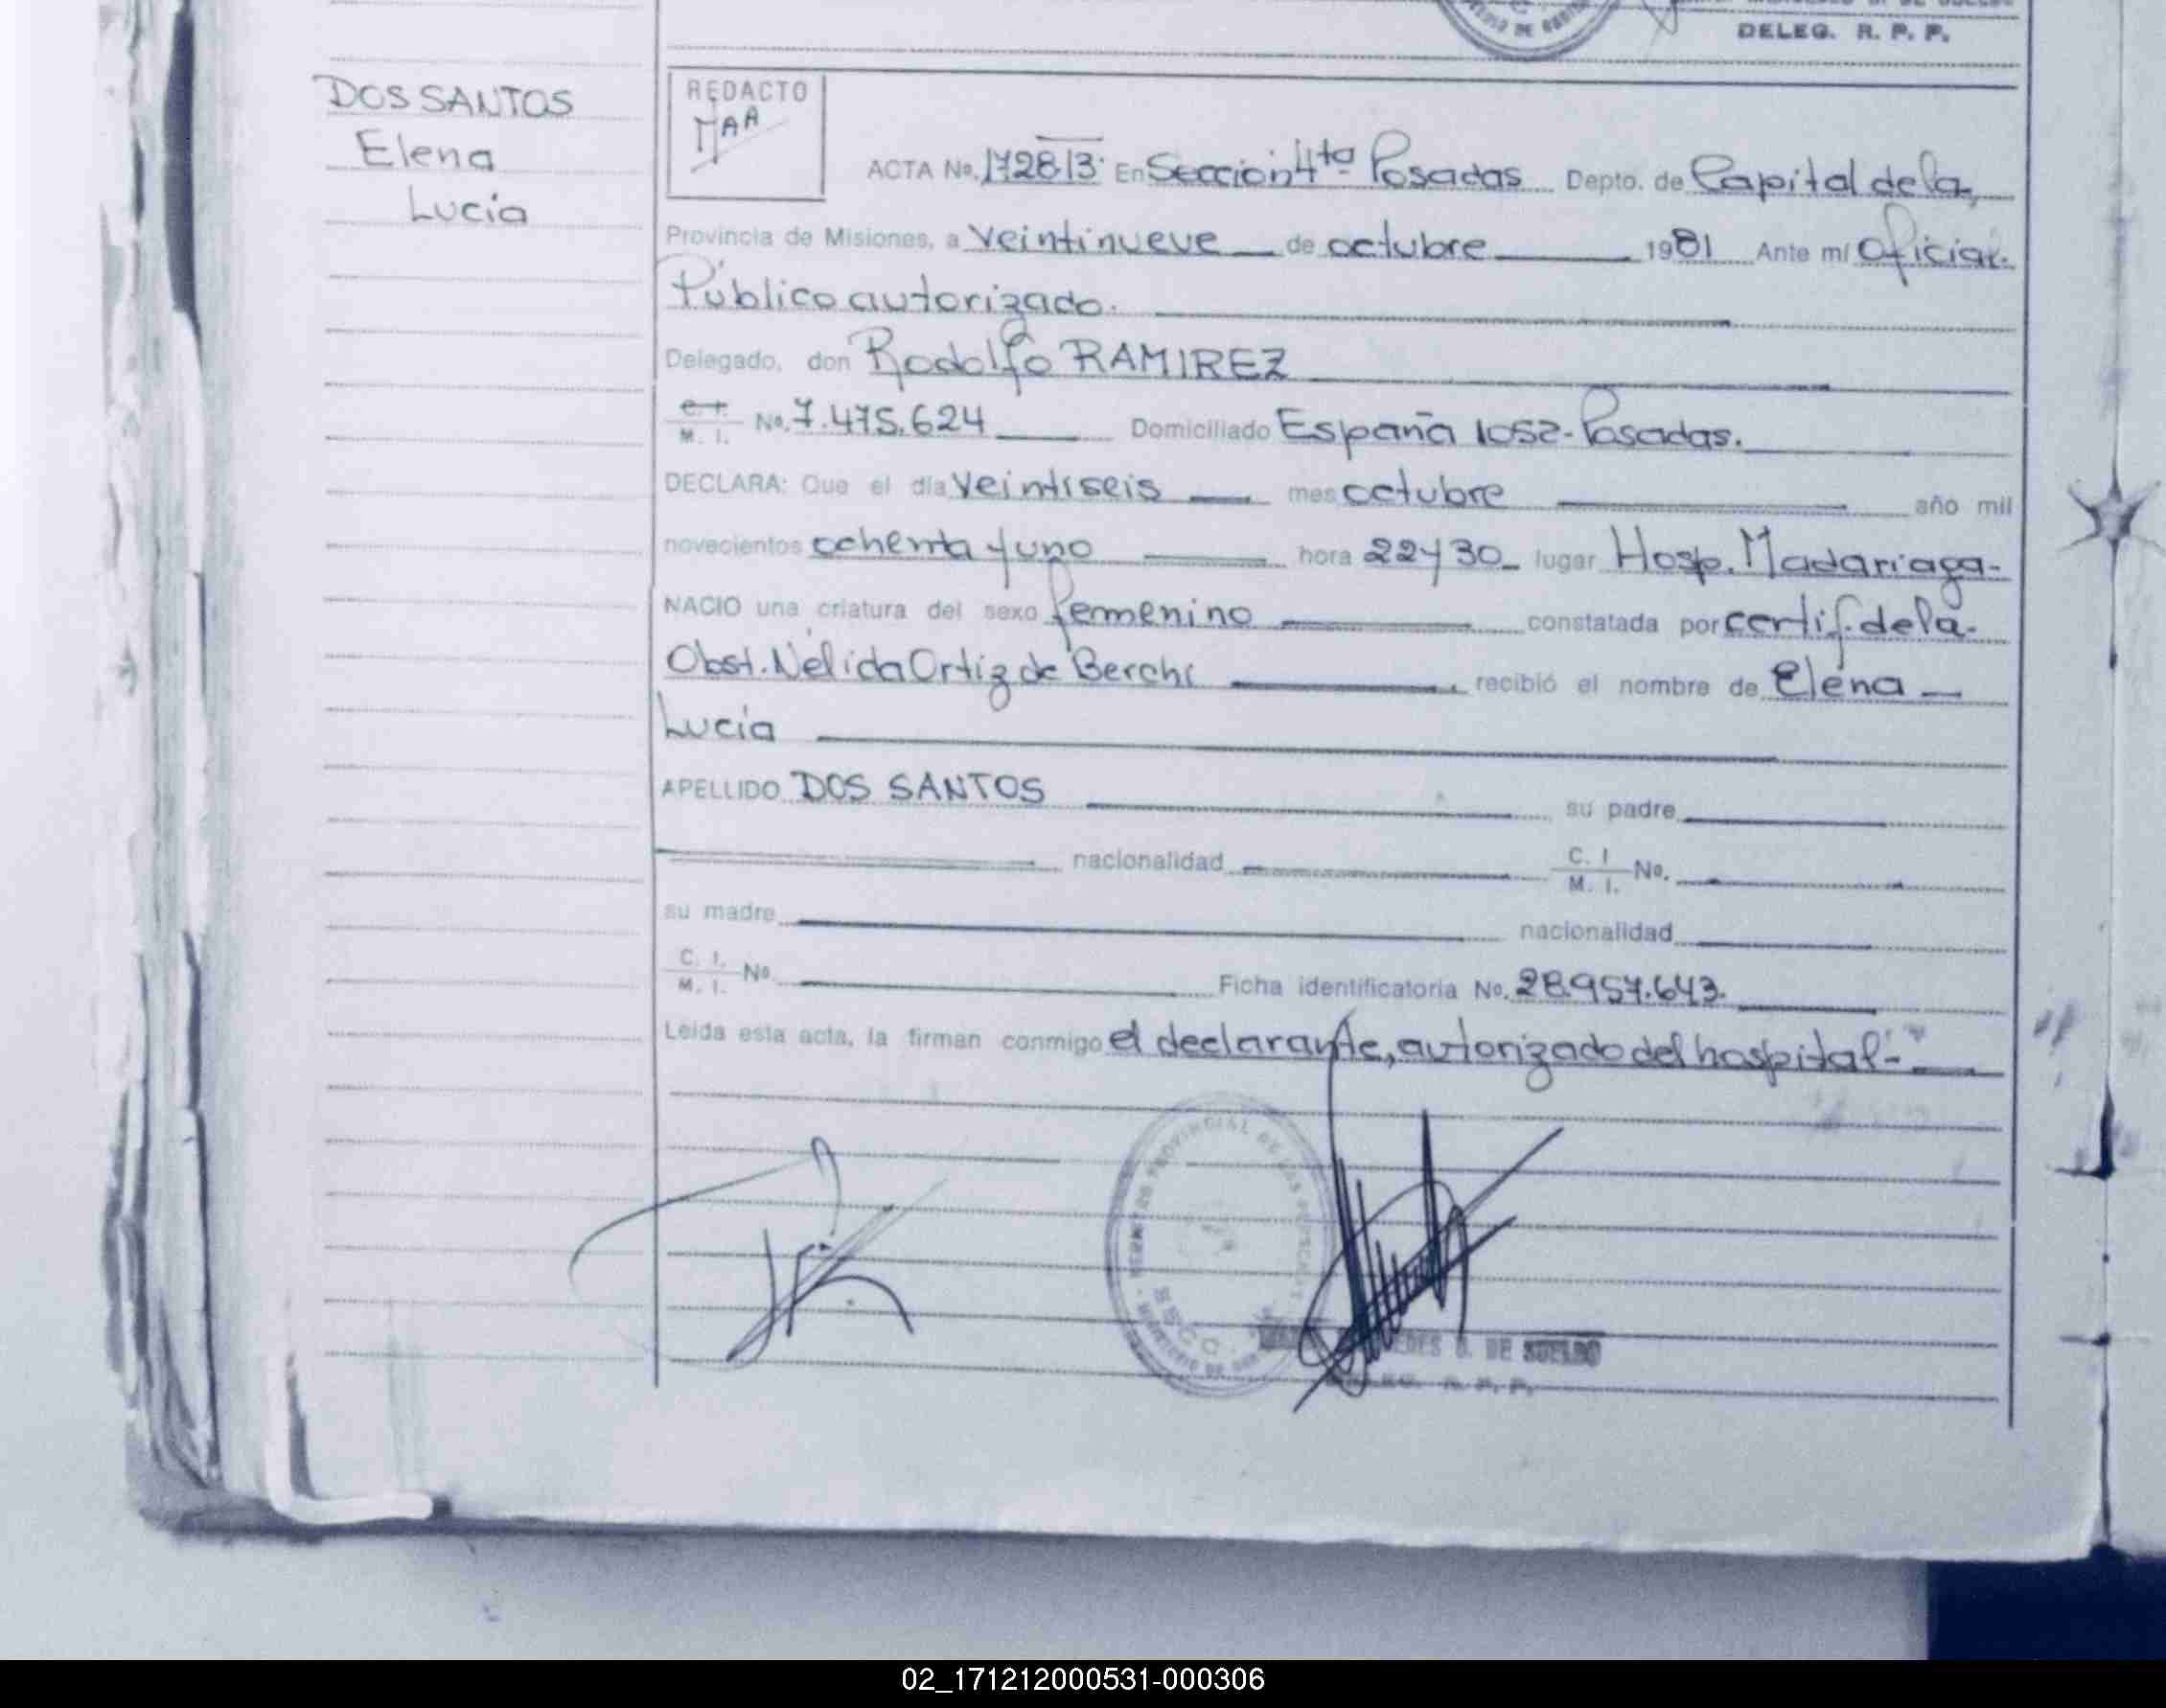 DELEG. R. P. P.
DOS SANTOS
Elena
Lucía
REDACTO
MAA
ACTA No. 1728/3 En Sección 4ta Posadas Depto. de Capital de la
Provincia de Misiones, a veintinueve de octubre 1981 Ante mí Oficial
Público autorizado.
Delegado, don Rodolfo RAMIREZ
C. I. M. I. No. 7.475.624 Domiciliado España 1052 - Posadas.
DECLARA: Que el día veintiseis mes octubre año mil
novecientos ochenta y uno hora 22 y 30 lugar Hosp. Madariaga-
NACIO una criatura del sexo femenino constatada por certif. de la
Obst. Nélida Ortiz de Berchi recibió el nombre de Elena
Lucía
APELLIDO DOS SANTOS su padre
nacionalidad C. I M. I. No.
su madre nacionalidad
C. I. M. I. No. Ficha identificatoria No. 28.957.643.
Leida esta acta, la firman conmigo el declarante, autorizado del hospital-
PROVINCIAL DE LAS PERSONAS
DE SUELDO
R. P. P.
02_171212000531-000306